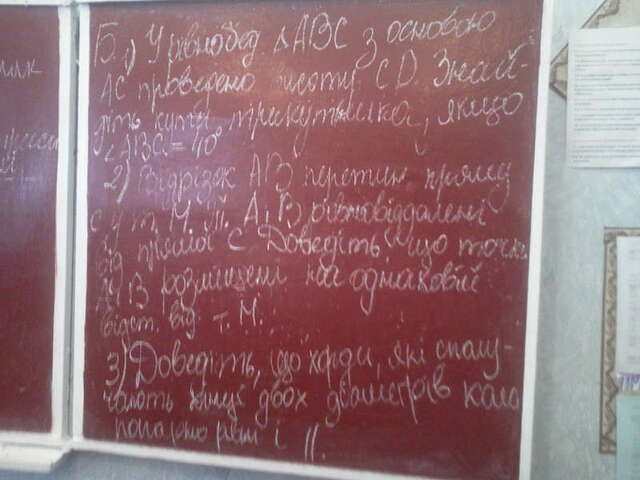 Б. 1) У рівнобед. △ABC з основою
AC проведено висоту CD. Знай-
діть кути трикутника, якщо
∠ABC = 40°
2) Відрізок AB перетин. пряму
c у т. M. Т. A і B рівновіддалені
від прямої c. Доведіть, що точки
A і B розміщені на однаковій
відст. від т. M.
3) Доведіть, що хорди, які сполу-
чають кінці двох діаметрів кола
попарно рівні і ||.